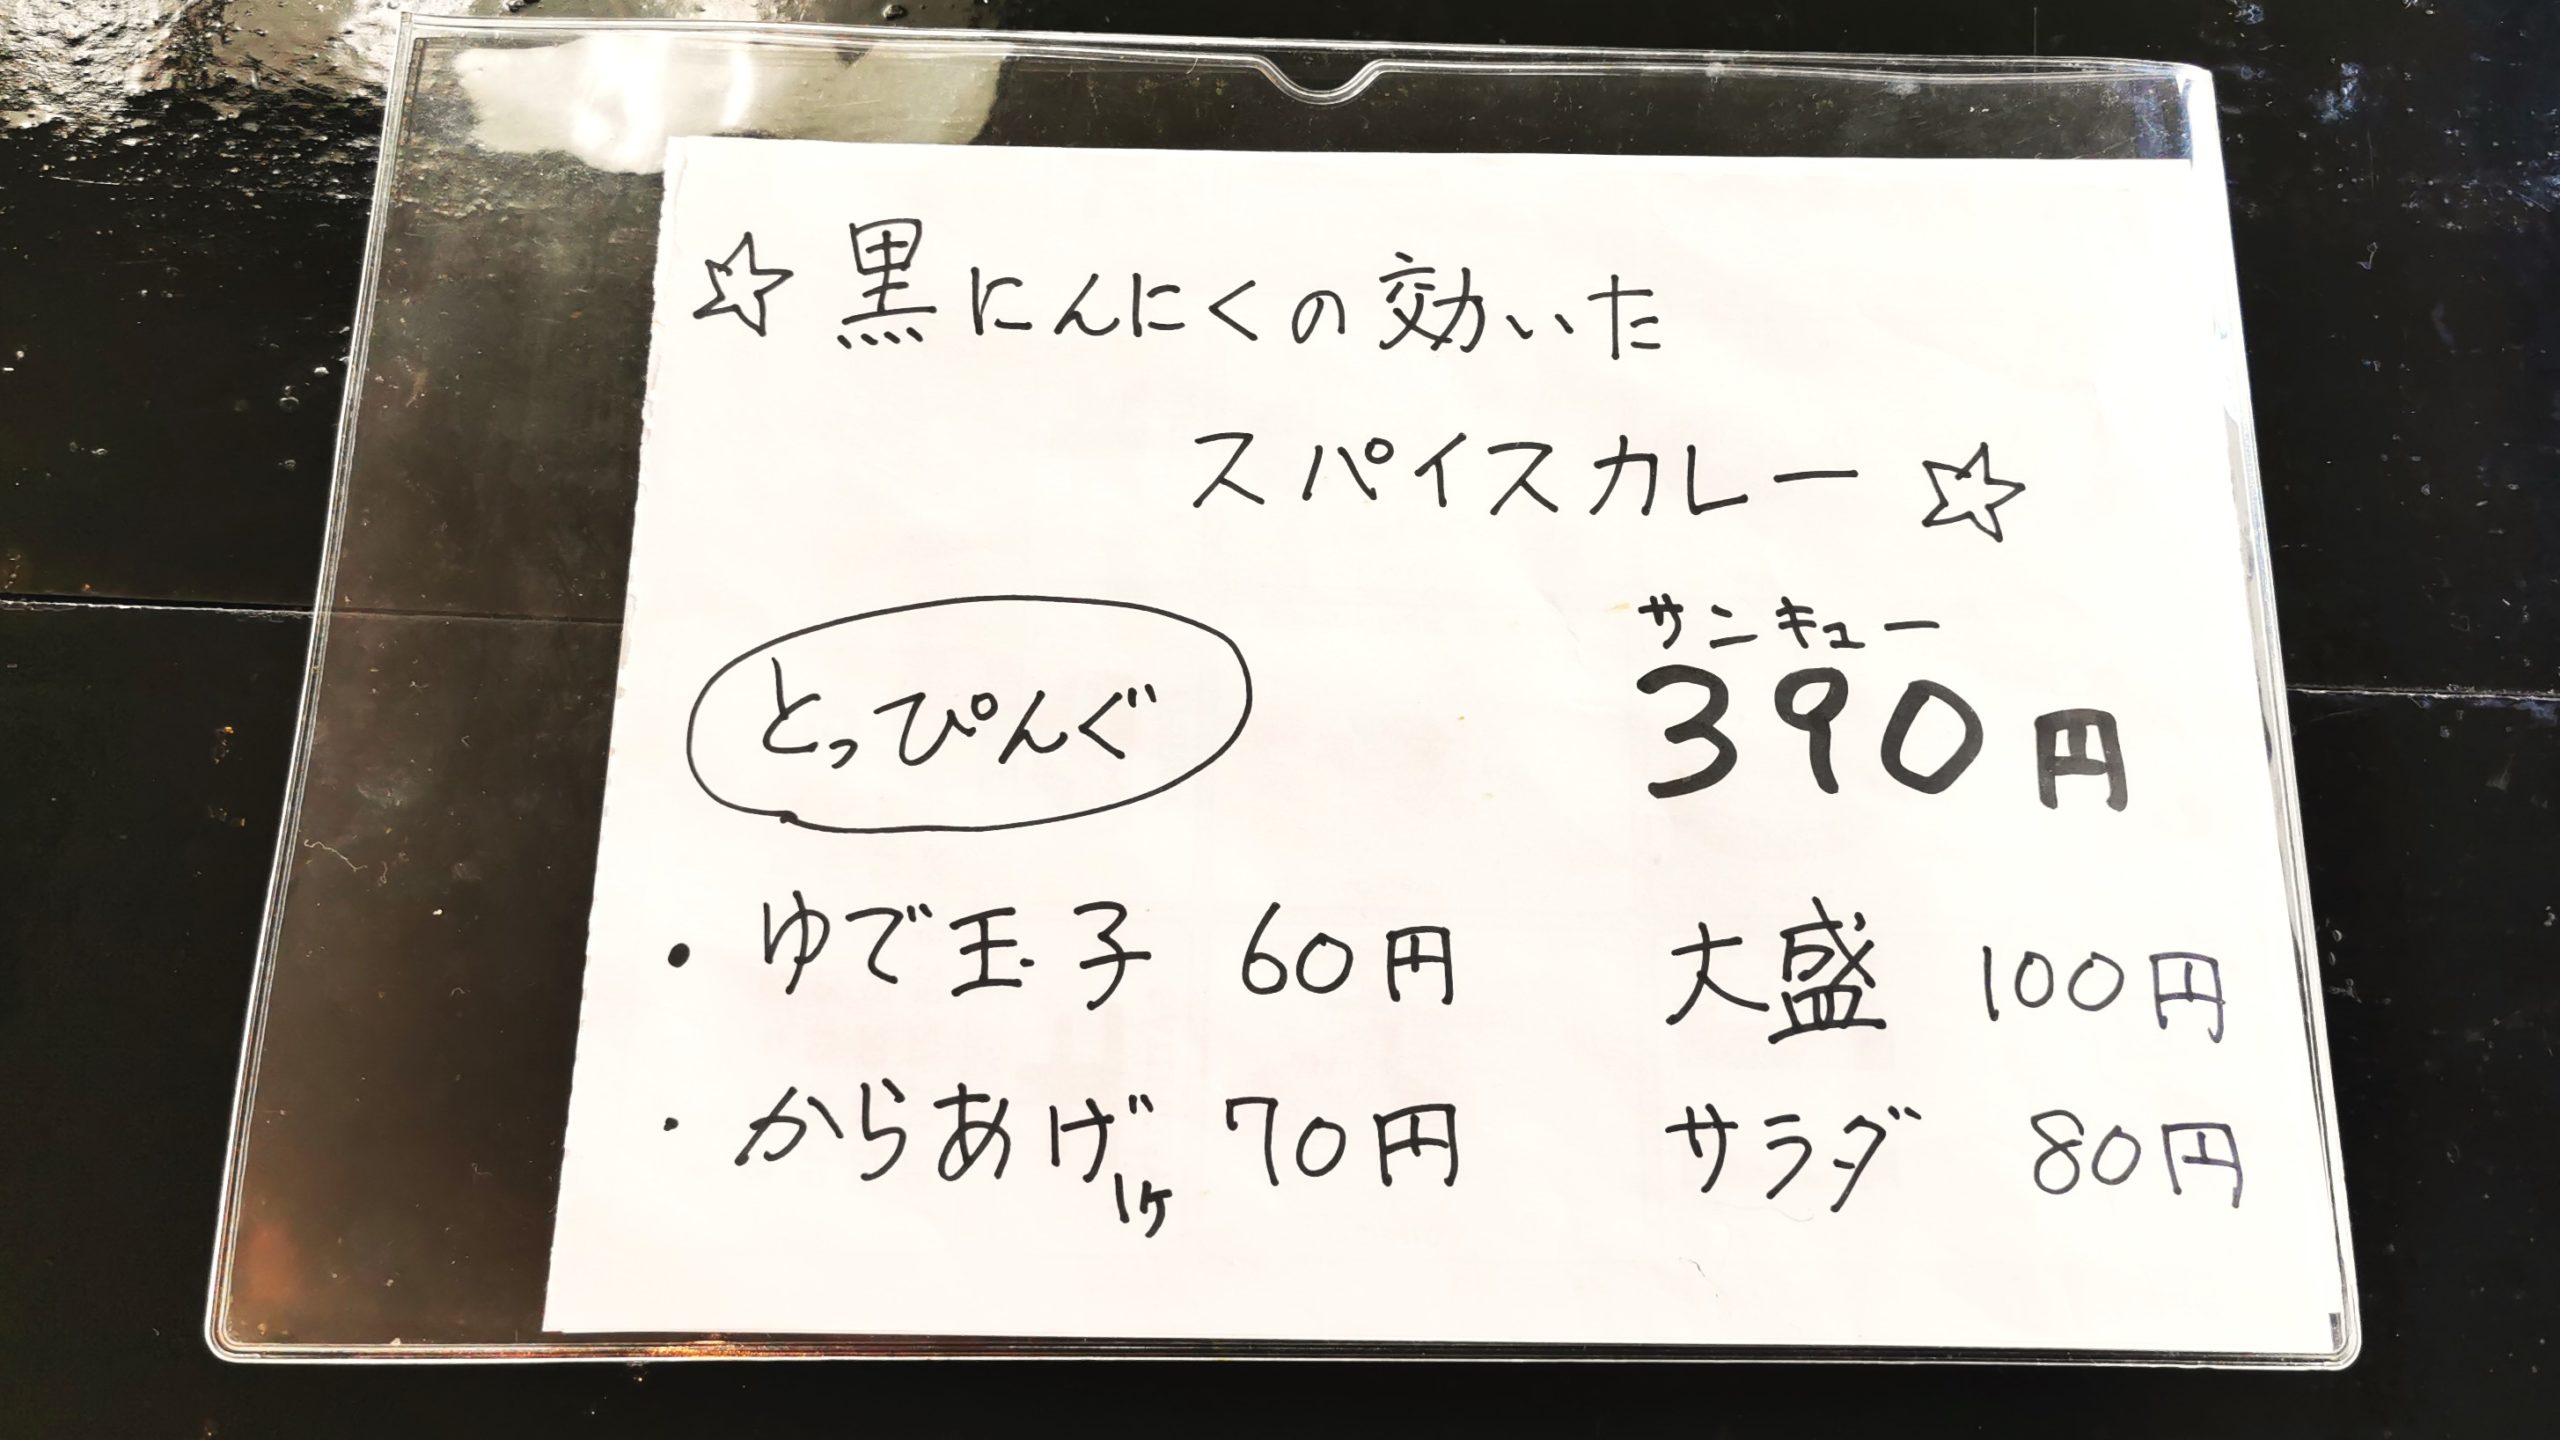 ☆黒にんにくの効いた
スパイスカレー☆
サンキュー
390円
とっぴんぐ
・ゆで玉子 60円 大盛 100円
・からあげ1ヶ 70円 サラダ 80円